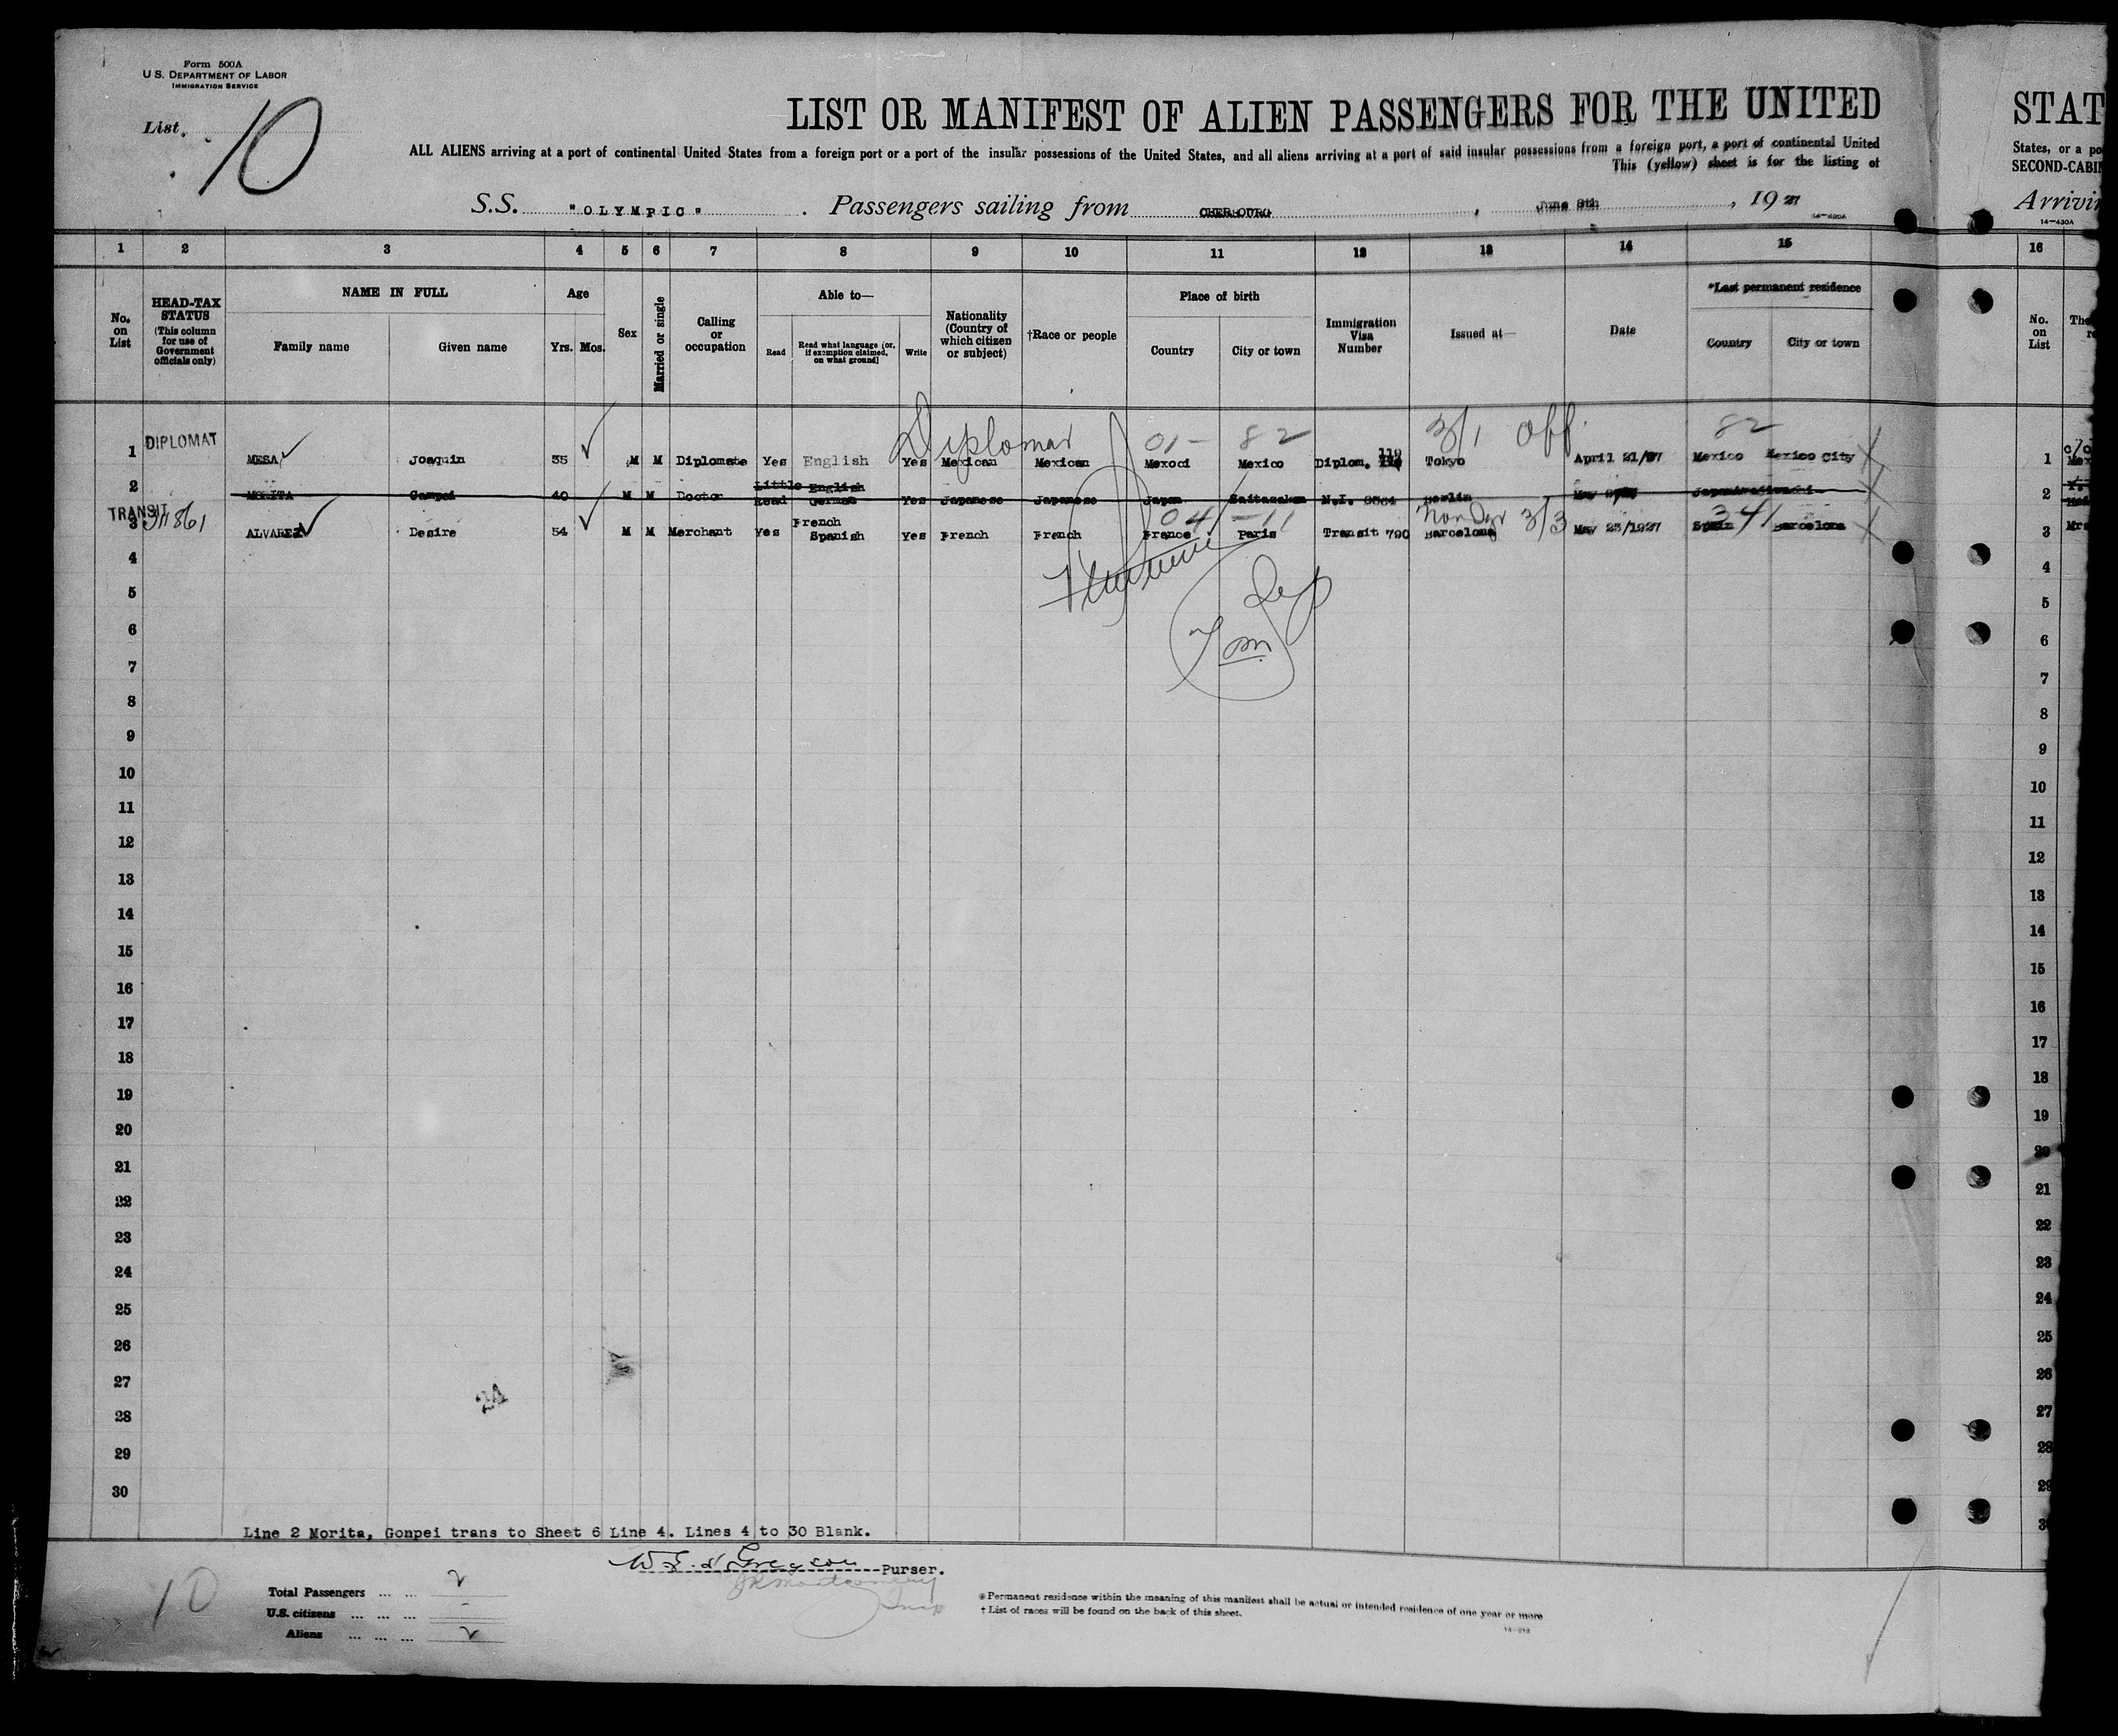 Form 500A
U.S. DEPARTMENT OF LABOR
IMMIGRATION SERVICE
List 10
LIST OR MANIFEST OF ALIEN PASSENGERS FOR THE UNITED STAT
ALL ALIENS arriving at a port of continental United States from a foreign port or a port of the insular possessions of the United States, and all aliens arriving at a port of said insular possessions from a foreign port, a port of continental United States, or a po
This (yellow) sheet is for the listing of SECOND-CABI
S.S. "OLYMPIC". Passengers sailing from CHERBOURG, June 8th, 1927 Arrivi
14-430A 14-430A
1 2 3 4 5 6 7 8 9 10 11 12 13 14 15 16
No. on List
HEAD-TAX STATUS (This column for use of Government officials only)
NAME IN FULL
Family name Given name
Age
Yrs. Mos.
Sex
Married or single
Calling or occupation
Able to—
Read Read what language (or, if exemption claimed, on what ground) Write
Nationality (Country of which citizen or subject)
†Race or people
Place of birth
Country City or town
Immigration Visa Number
Issued at—
Date
*Last permanent residence
Country City or town
No. on List
The
Diplomat 01- 82 3/1 Off. 82
1 DIPLOMAT MESA Joaquin 35 M M Diplomate Yes English Yes Mexican Mexican Mexoci Mexico Diplom. 112 Tokyo April 21/27 Mexico Mexico City 1 c/o Mex
2 MORITA Gompei 40 M M Doctor Little Read English German Yes Japanese Japanese Japan Saitamaken N.I. 8564 Berlin May 2
TRANSIT
3 ALVAREZ Desire 54 M M Merchant Yes French Spanish Yes French French France Paris Transit 790 Barcelona May 23/1927 Spain Barcelona 3 Mrs
04 -11 3/3 341
Dep
4 4
5 5
6 6
7 7
8 8
9 9
10 10
11 11
12 12
13 13
14 14
15 15
16 16
17 17
18 18
19 19
20 20
21 21
22 22
23 23
24 24
25 25
26 26
27 27
28 28
29 29
30 3
24
Line 2 Morita, Gonpei trans to Sheet 6 Line 4. Lines 4 to 30 Blank.
Purser.
JR Montgomery
Insp
10
Total Passengers ... ... 2
U.S. citizens ... ... ... -
Aliens ... ... ... 2
* Permanent residence within the meaning of this manifest shall be actual or intended residence of one year or more
† List of races will be found on the back of this sheet.